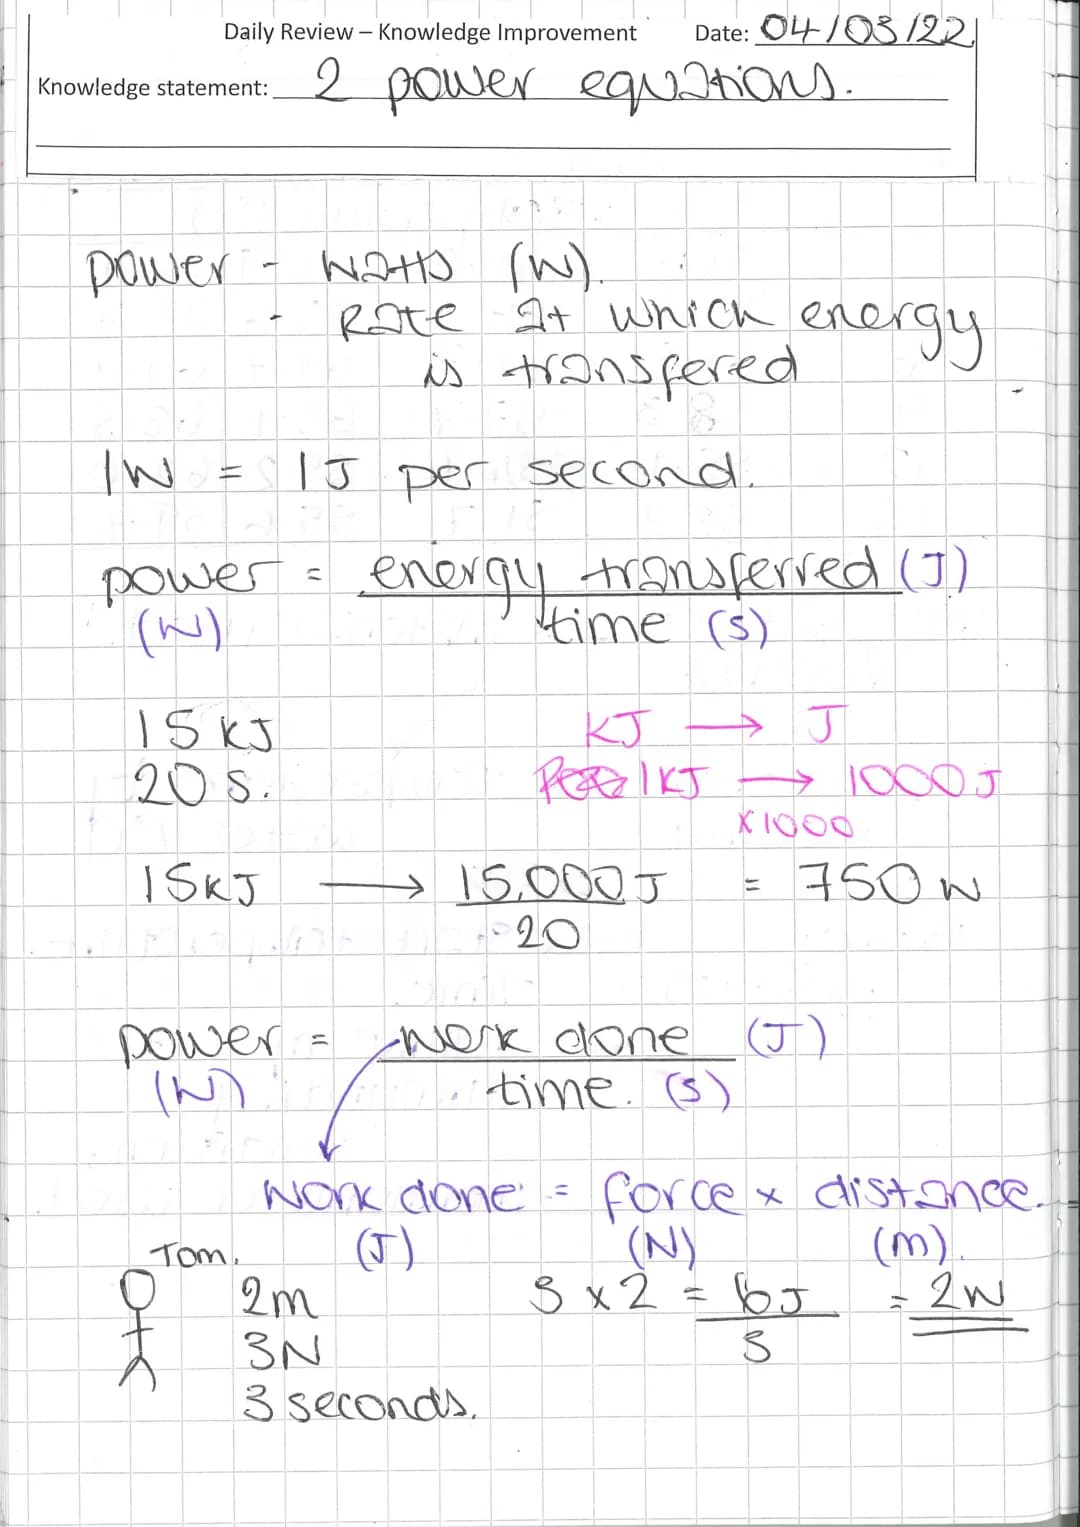 Daily Review – Knowledge Improvement Date: 04/03/22
Knowledge statement: 2 power equations.
power - watts (W).
- Rate at which energy
is transfered
1W = 1J per second.
power = energy transferred (J)
(W) time (s)
15 kJ kJ → J
20 s. 1kJ → 1000J
x1000
15kJ → 15,000J = 750 W
20
power = work done (J)
(W) time. (s)
Work done = force x distance.
Tom. (J) (N) (m).
2m 3 x 2 = 6J = 2W
3N 3
3 seconds.